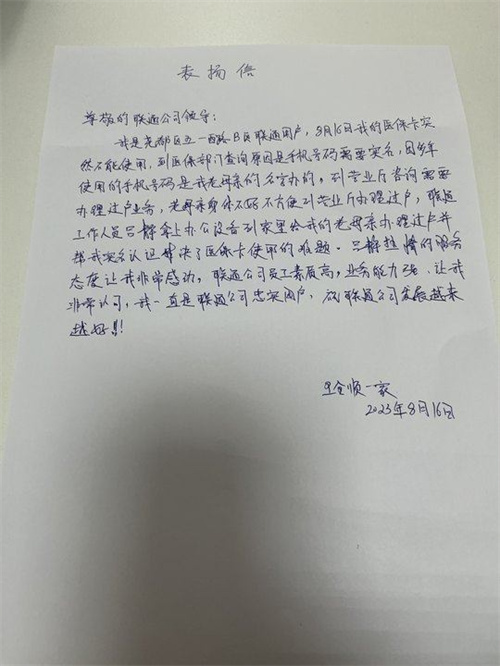 表扬信
尊敬的联通公司领导：
我是尧都区五一西路B区联通用户，8月16日我的医保卡突
然不能使用，到医保部门查询原因是手机号码需要实名，因多年
使用的手机号码是我老母亲的名字办的。到营业厅咨询需要
办理过户业务，老母亲身体不好不方便到营业厅办理过户，联通
工作人员吕静拿上办公设备到家里给我的老母亲办理过户并
帮我实名认证解决了医保卡使用的难题。吕静热情的服务
态度让我非常感动，联通公司员工素质高，业务能力强，让我
非常认可，我一直是联通公司忠实用户，祝联通公司发展越来
越好!!!
全顺一家
2023年8月16日